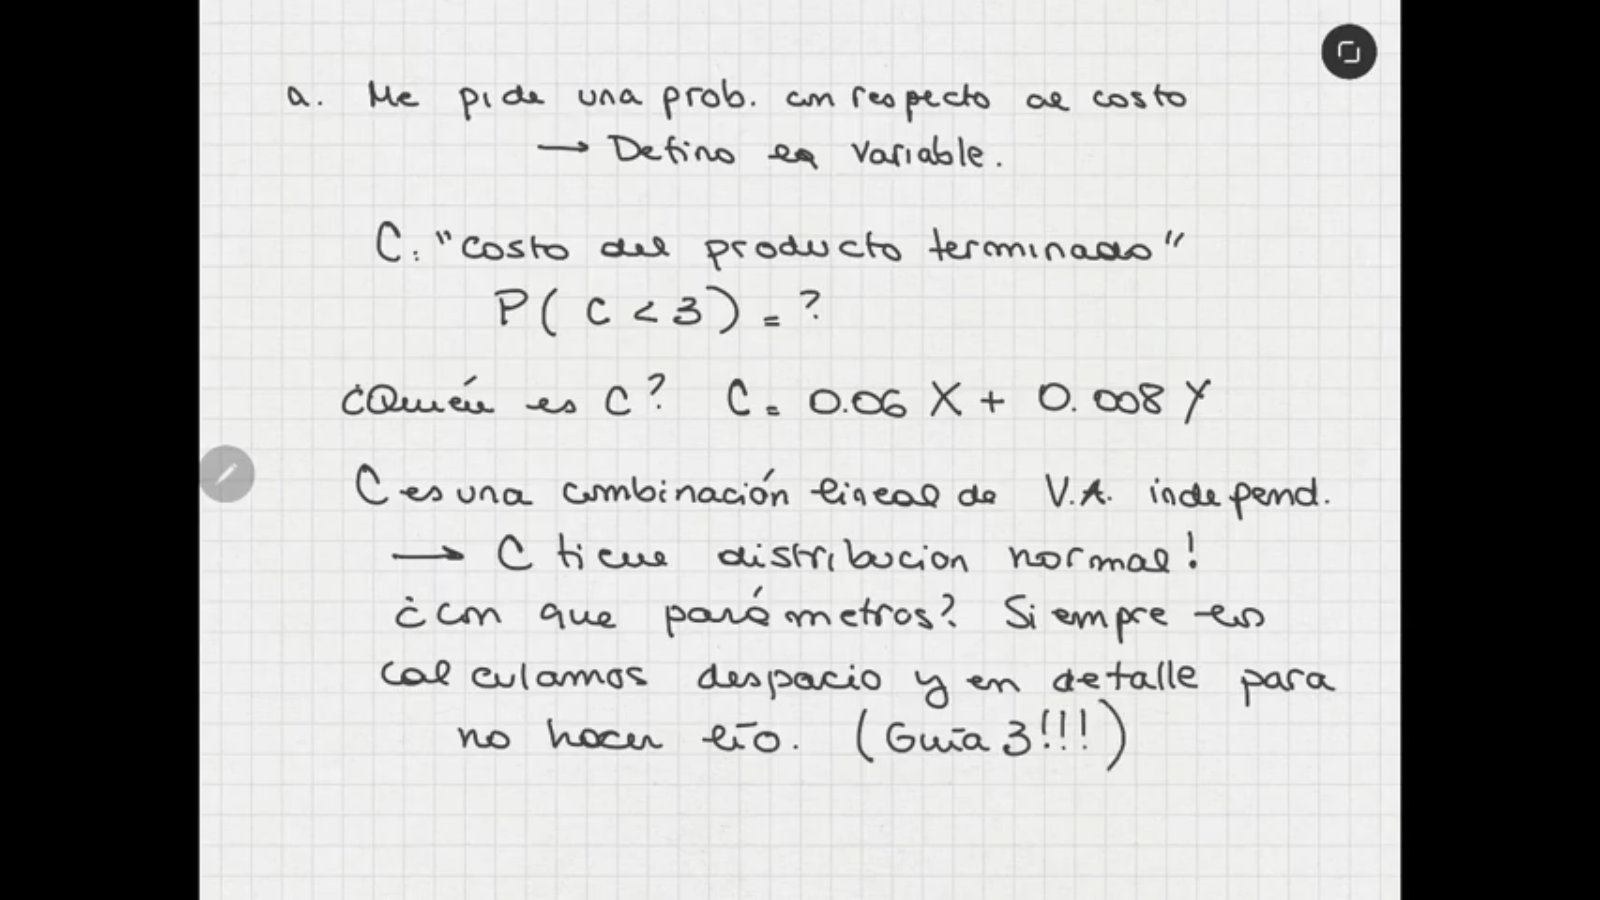 a. Me pide una prob. con respecto al costo
→ Defino la variable.
C: "costo del producto terminado"
P( C < 3 ) = ?
¿Quién es C? C = 0.06 X + 0.008 Y
C es una combinación lineal de V.A. independ.
→ C tiene distribucion normal!
¿con que parámetros? Siempre los
calculamos despacio y en detalle para
no hacer lío. (Guía 3!!!)